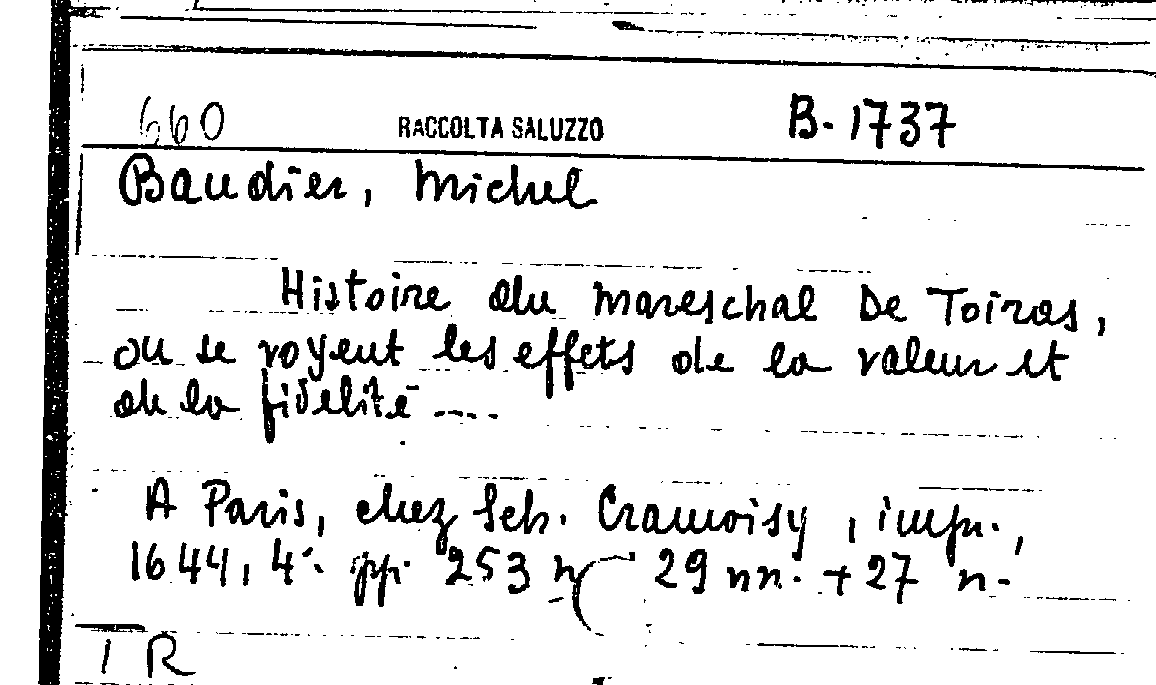 660 RACCOLTA SALUZZO B. 1737
Baudier, Michel
Histoire du Mareschal De Toiras,
ou se voyent les effets de la valeur et
de la fidelité ....
A Paris, chez Seb. Cramoisy, impr.,
1644, 4°. pp. 253 n 29 nn. + 27 n.
I R